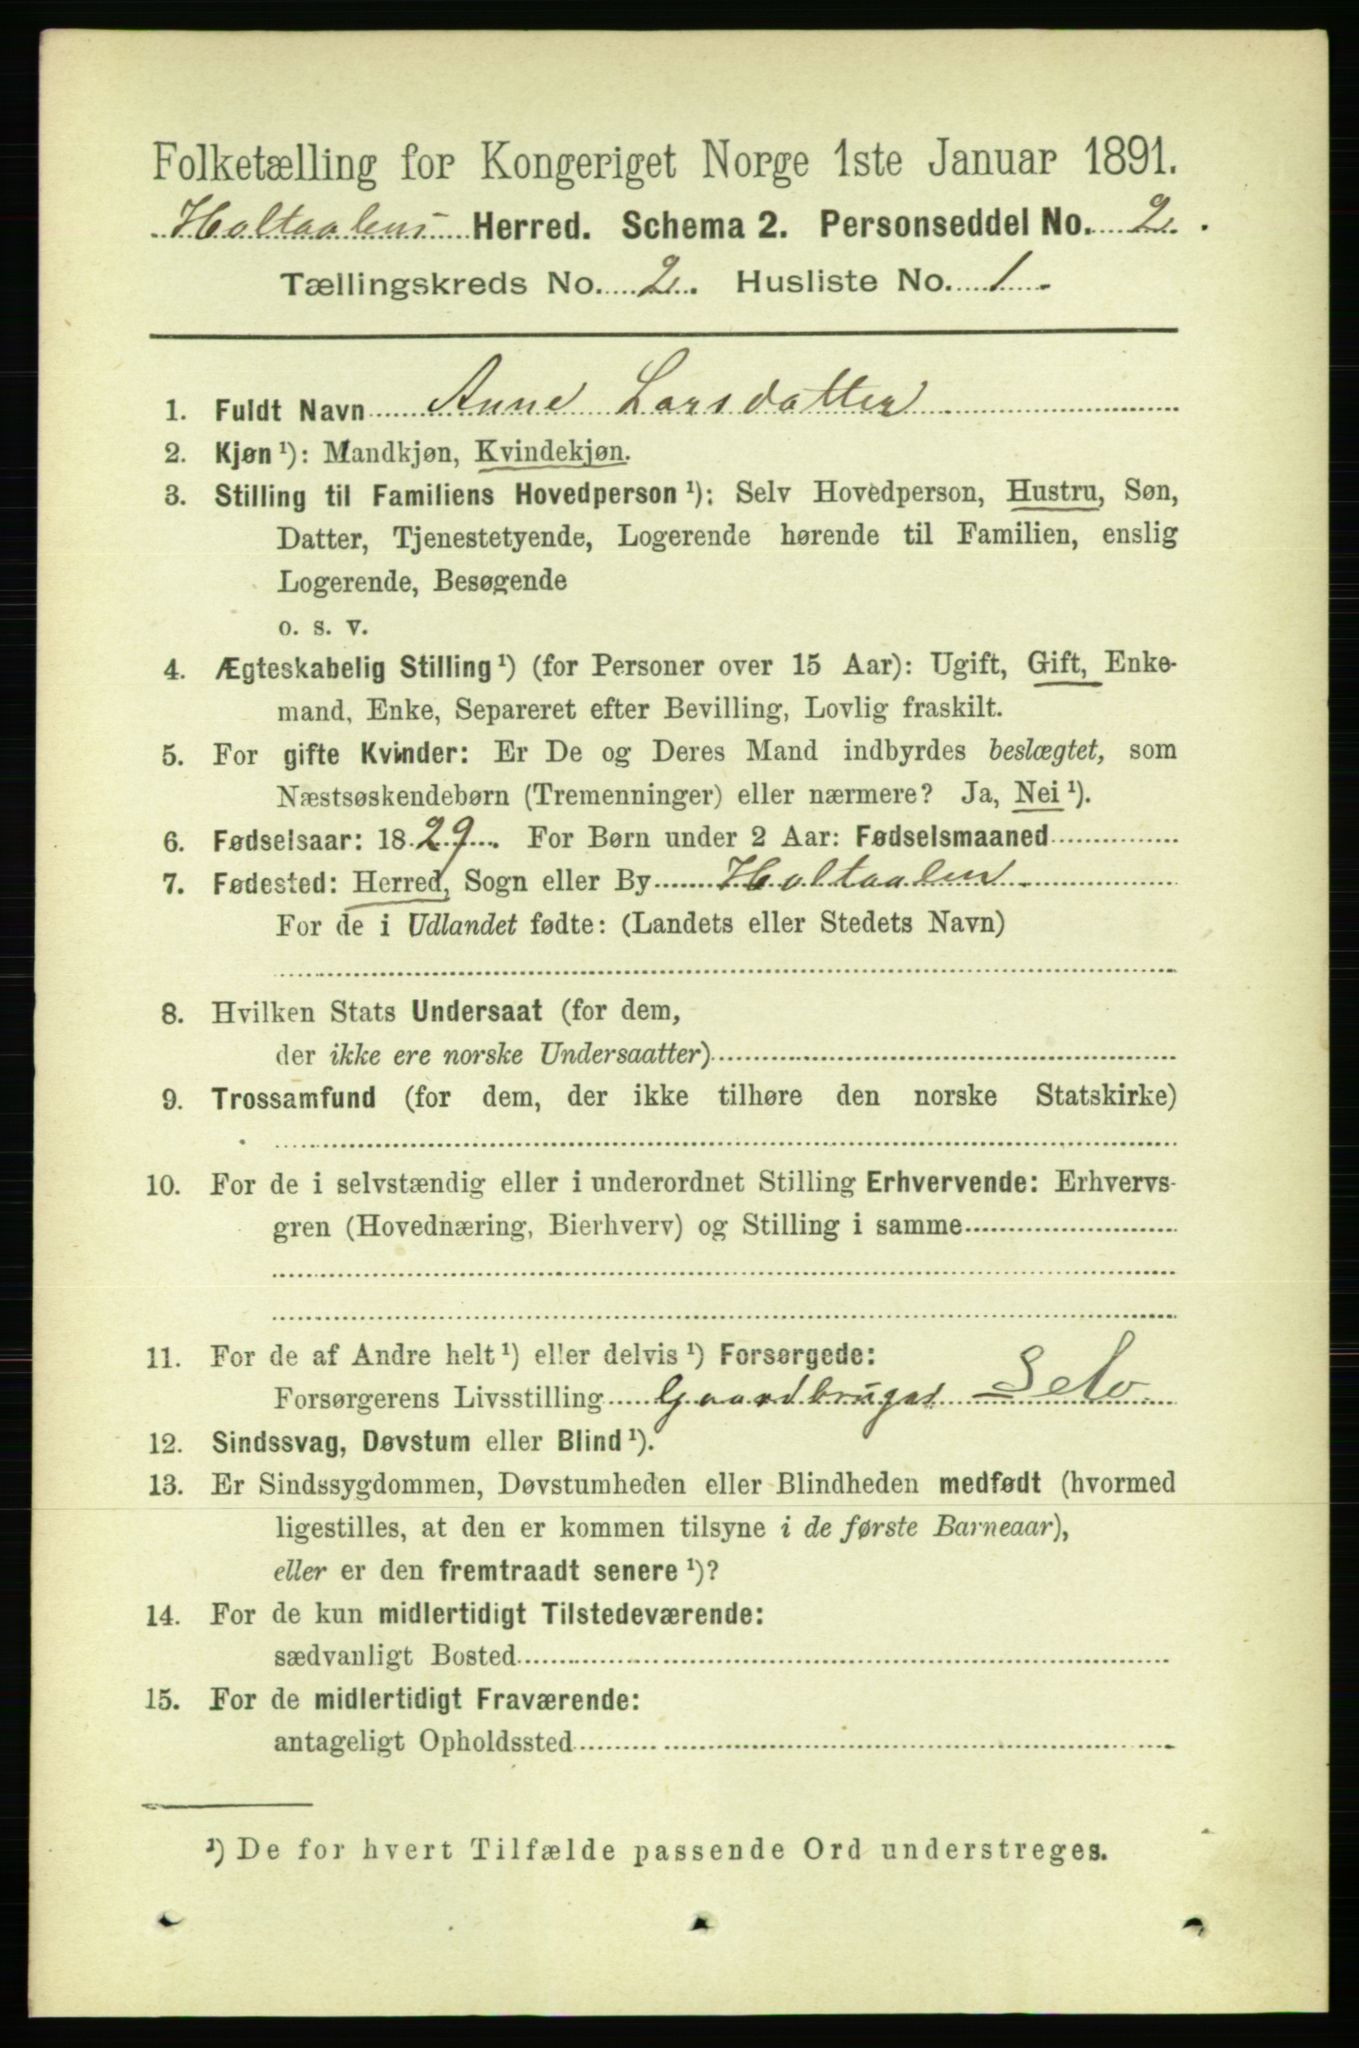 Folketælling for Kongeriget Norge 1ste Januar 1891.
Holtaalens Herred. Schema 2. Personseddel No. 2.
Tællingskreds No. 2. Husliste No. 1.
1. Fuldt Navn Anne Larsdatter
2. Kjøn¹): Mandkjøn, Kvindekjøn.
3. Stilling til Familiens Hovedperson¹): Selv Hovedperson, Hustru, Søn,
Datter, Tjenestetyende, Logerende hørende til Familien, enslig
Logerende, Besøgende
o. s. v.
4. Ægteskabelig Stilling¹) (for Personer over 15 Aar): Ugift, Gift, Enke-
mand, Enke, Separeret efter Bevilling, Lovlig fraskilt.
5. For gifte Kvinder: Er De og Deres Mand indbyrdes beslægtet, som
Næstsøskendebørn (Tremenninger) eller nærmere? Ja, Nei¹).
6. Fødselsaar: 1829. For Børn under 2 Aar: Fødselsmaaned
7. Fødested: Herred, Sogn eller By Holtaalen
For de i Udlandet fødte: (Landets eller Stedets Navn)
8. Hvilken Stats Undersaat (for dem,
der ikke ere norske Undersaatter)
9. Trossamfund (for dem, der ikke tilhøre den norske Statskirke)
10. For de i selvstændig eller i underordnet Stilling Erhvervende: Erhvervs-
gren (Hovednæring, Bierhverv) og Stilling i samme
11. For de af Andre helt¹) eller delvis¹) Forsørgede:
Forsørgerens Livsstilling Gaardbruger Selv
12. Sindssvag, Døvstum eller Blind¹).
13. Er Sindssygdommen, Døvstumheden eller Blindheden medfødt (hvormed
ligestilles, at den er kommen tilsyne i de første Barneaar),
eller er den fremtraadt senere¹)?
14. For de kun midlertidigt Tilstedeværende:
sædvanligt Bosted
15. For de midlertidigt Fraværende:
antageligt Opholdssted
¹) De for hvert Tilfælde passende Ord understreges.